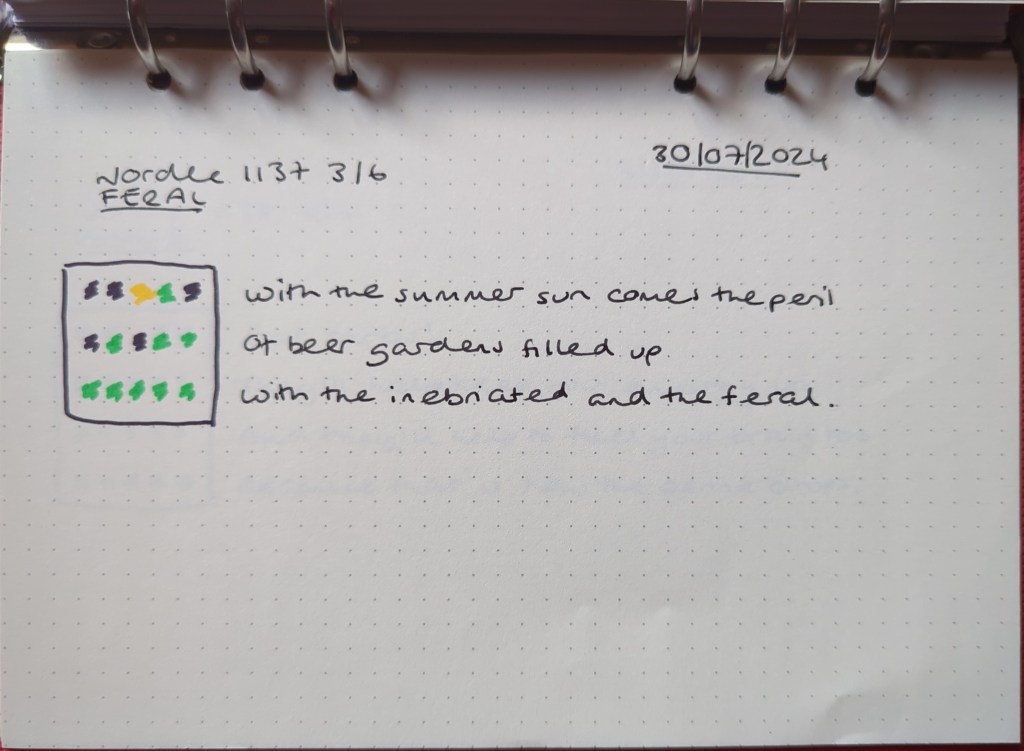 Wordle 1137 3/6
FERAL
30/07/2024
with the summer sun comes the peril
of beer gardens filled up
with the inebriated and the feral.